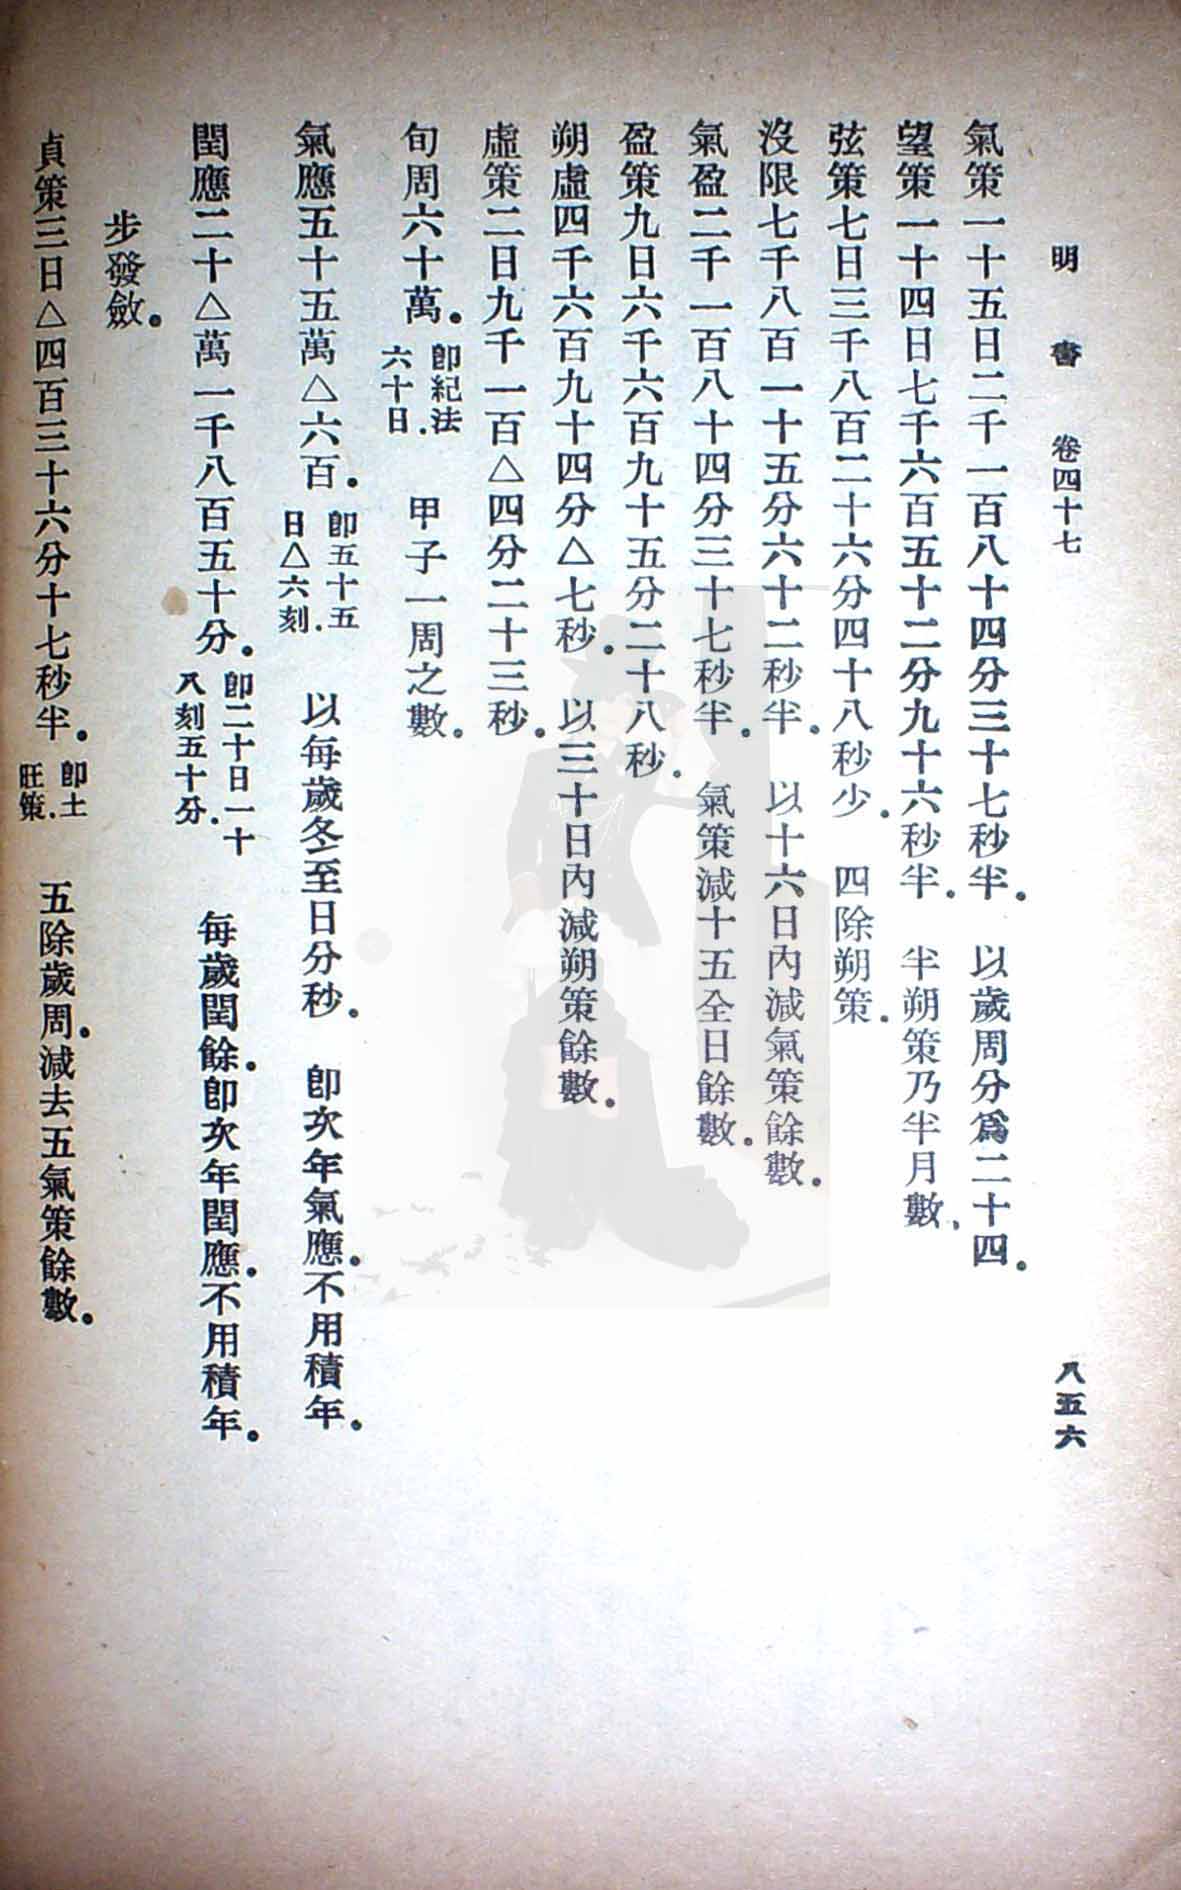 明書　卷四十七　八五六
氣策一十五日二千一百八十四分三十七秒半。　以歲周分爲二十四。
望策一十四日七千六百五十二分九十六秒半。　半朔策乃半月數、
弦策七日三千八百二十六分四十八秒少。　四除朔策。
沒限七千八百一十五分六十二秒半。　以十六日內減氣策餘數。
氣盈二千一百八十四分三十七秒半。　氣策減十五全日餘數。
盈策九日六千六百九十五分二十八秒。
朔虛四千六百九十四分△七秒。　以三十日內減朔策餘數。
虛策二日九千一百△四分二十三秒。
旬周六十萬。　卽紀法六十日。　甲子一周之數。
氣應五十五萬△六百。　卽五十五日△六刻。　以每歲冬至日分秒。　卽次年氣應。不用積年。
閏應二十△萬一千八百五十分。　卽二十日一十八刻五十分。　每歲閏餘。卽次年閏應。不用積年。
步發斂。
貞策三日△四百三十六分十七秒半。　卽土旺策。　五除歲周。減去五氣策餘數。